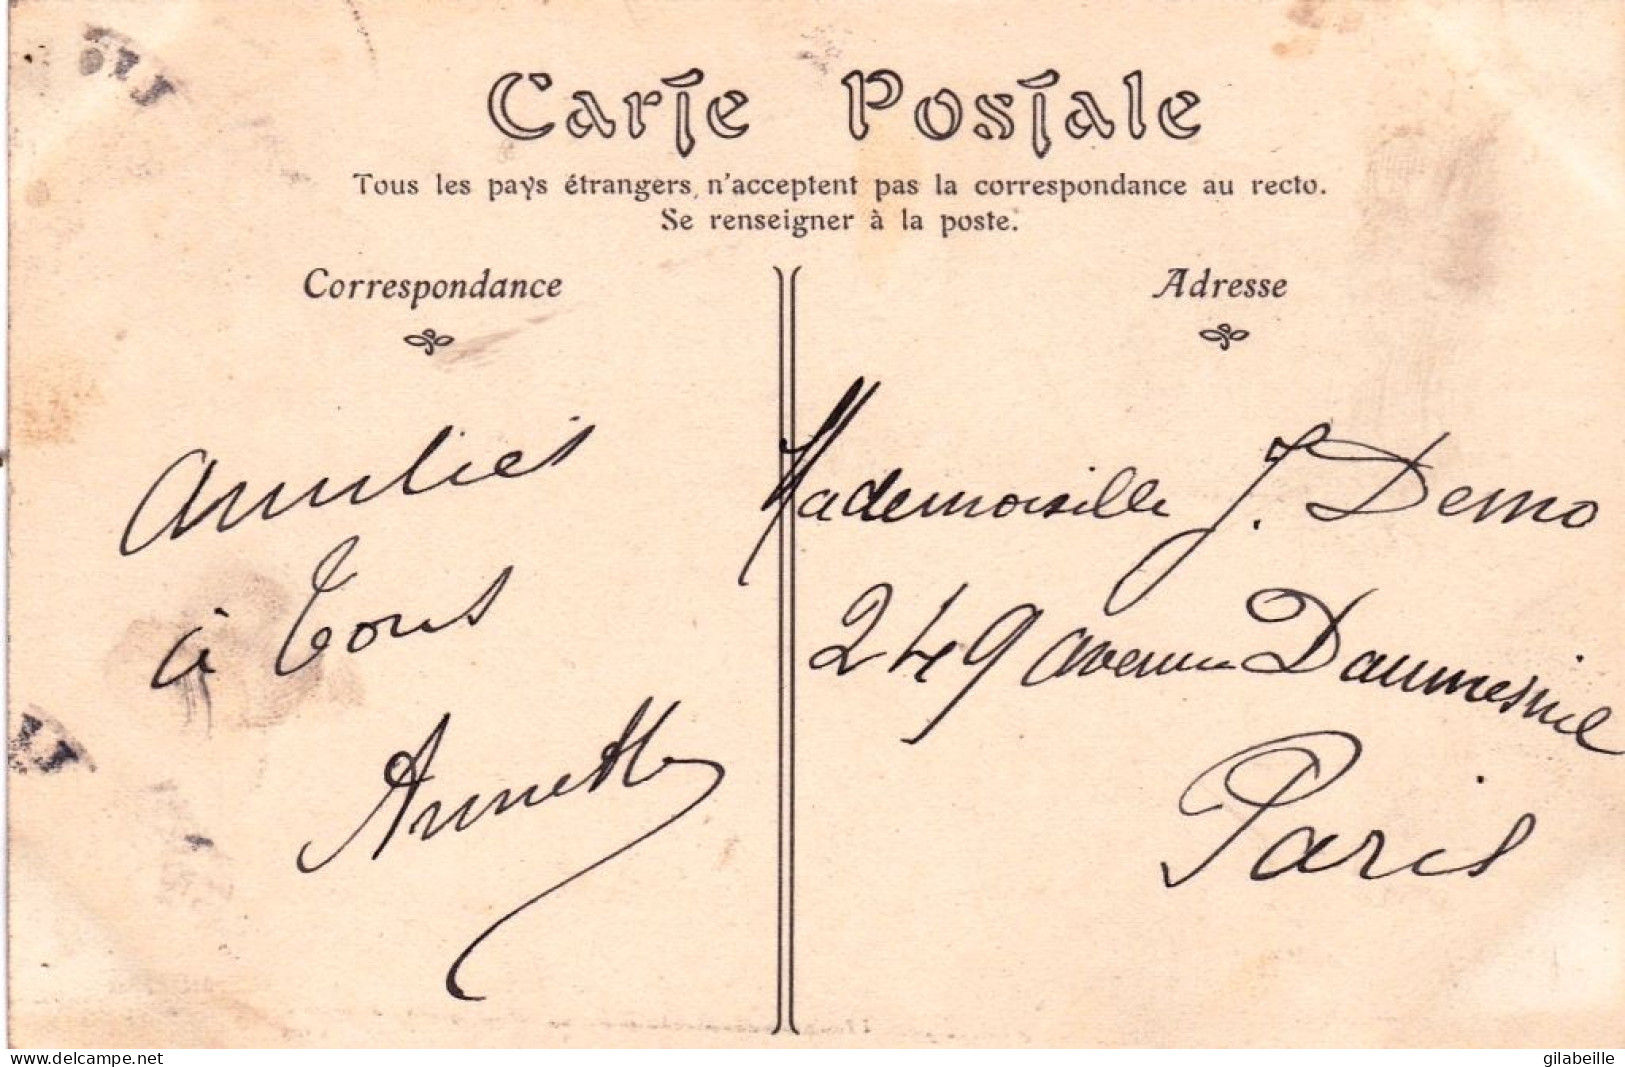 Carte Postale
Tous les pays étrangers n'acceptent pas la correspondance au recto.
Se renseigner à la poste.
Correspondance
Adresse
Amitiés
à tous
Annette
Mademoiselle J. Demo
249 avenue Daumesnil
Paris
www.delcampe.net
gilabeille